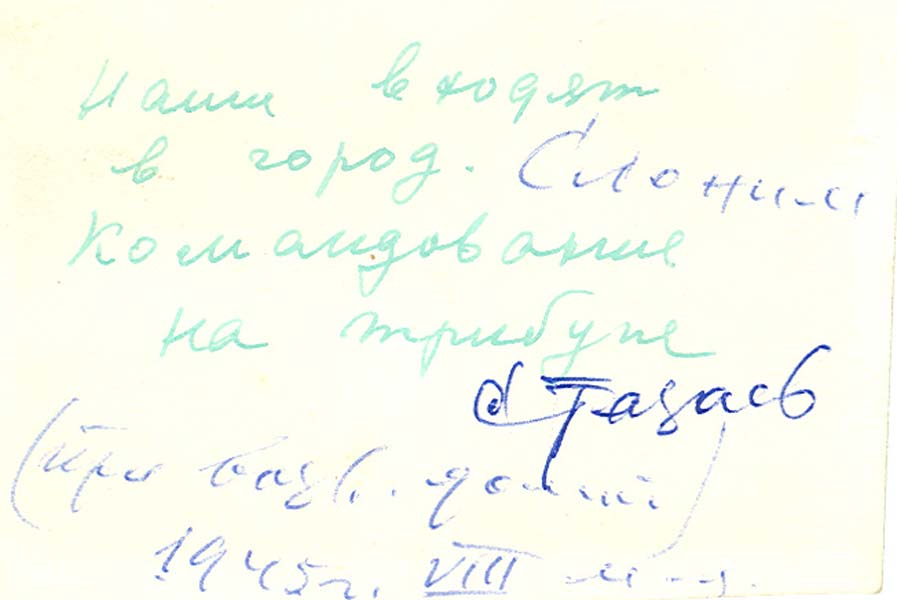 Наши входят
в город. Слоним
Командование
на трибуне
(При возв. домой)
1945г. VIII м-ц.